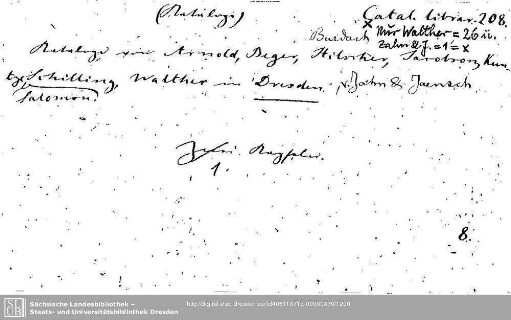 (Kataloge)
Catal. librar. 208.
Burdach x Nur Walther = 26 u.
Zahn & J. = 1 = x
Kataloge von Arnold, Beger, Hilscher, Jacobson, Kun-
tze, Schilling, Walther in Dresden v. Zahn & Jaensch.
Salomon,
Kapsler.
1.
8.
SLUB
Sächsische Landesbibliothek –
Staats- und Universitätsbibliothek Dresden